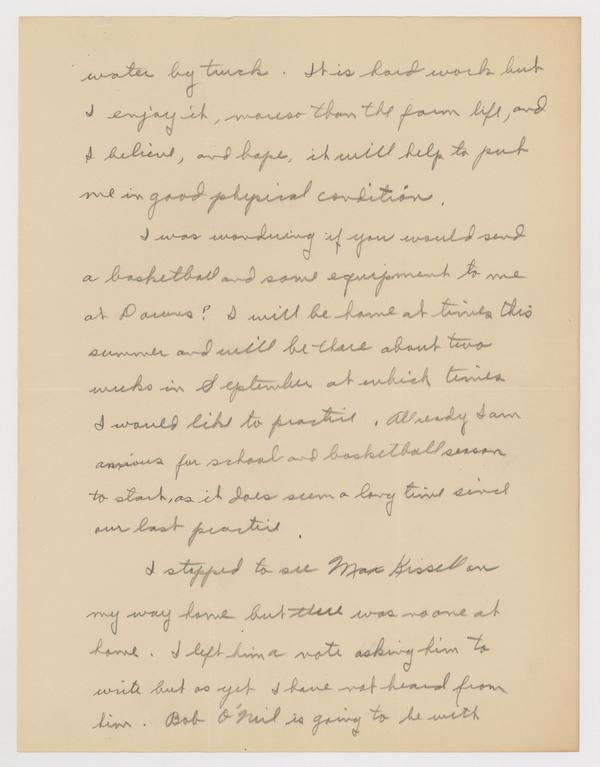 water by truck. It is hard work but
I enjoy it, moreso than the farm life, and
I believe, and hope, it will help to put
me in good physical condition.
I was wondering if you would send
a basketball and some equipment to me
at Downs? I will be home at times this
summer and will be there about two
weeks in September at which times
I would like to practice. Already I am
anxious for school and basketball season
to start, as it does seem a long time since
our last practice.
I stopped to see Max Kissell on
my way home but there was no one at
home. I left him a note asking him to
write but as yet I have not heard from
him. Bob O'Neil is going to be with